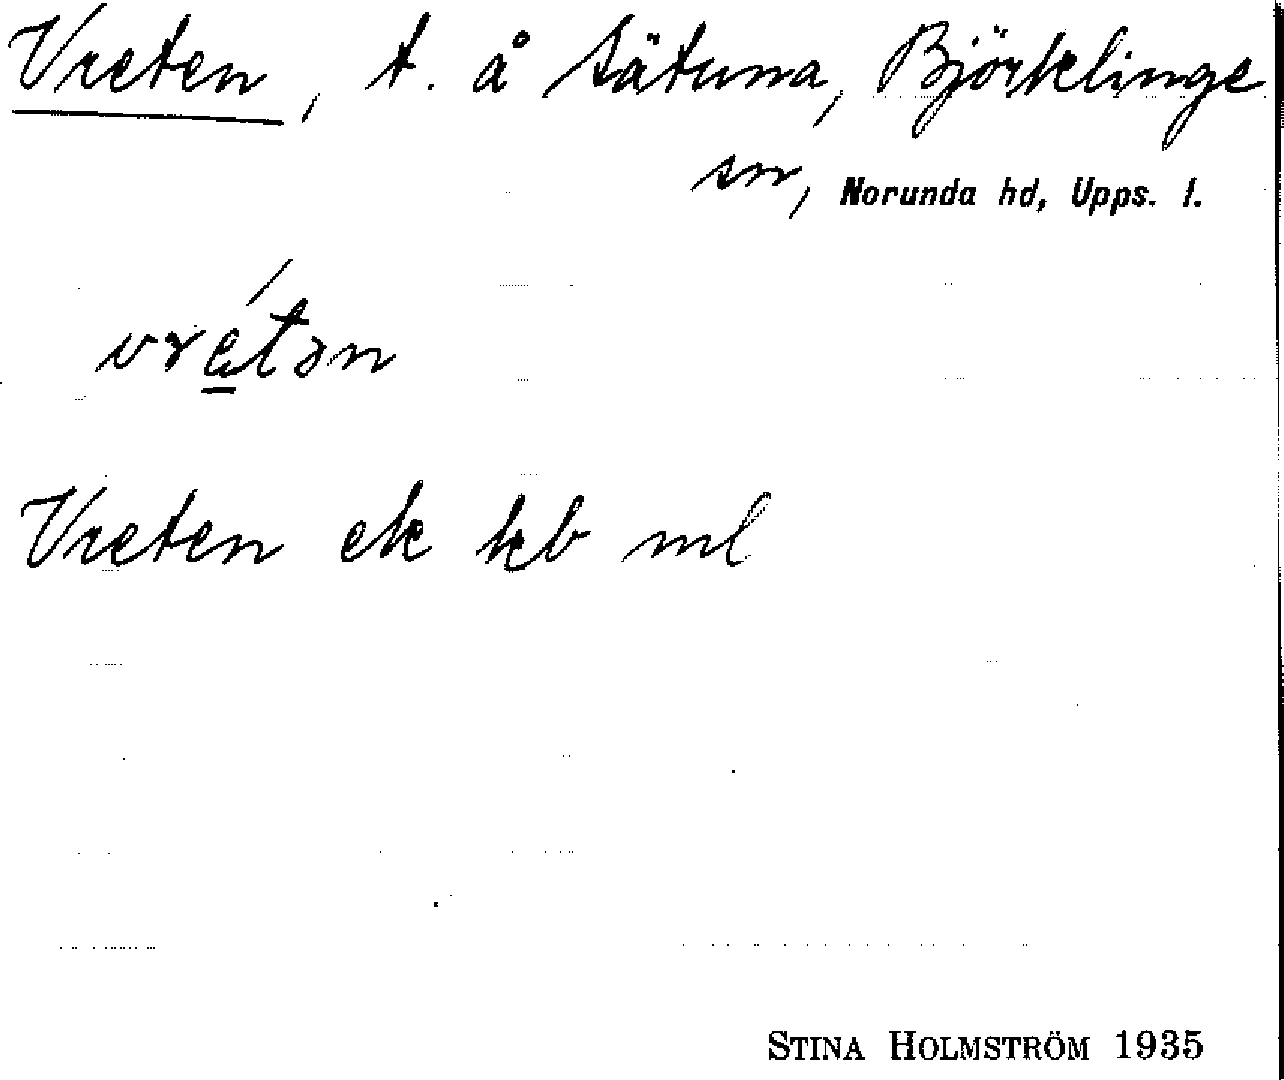 Vreten, t. å Sätuna, Björklinge
sn, Norunda hd, Upps. l.
vré̲tən
Vreten ek kb ml
STINA HOLMSTRÖM 1935